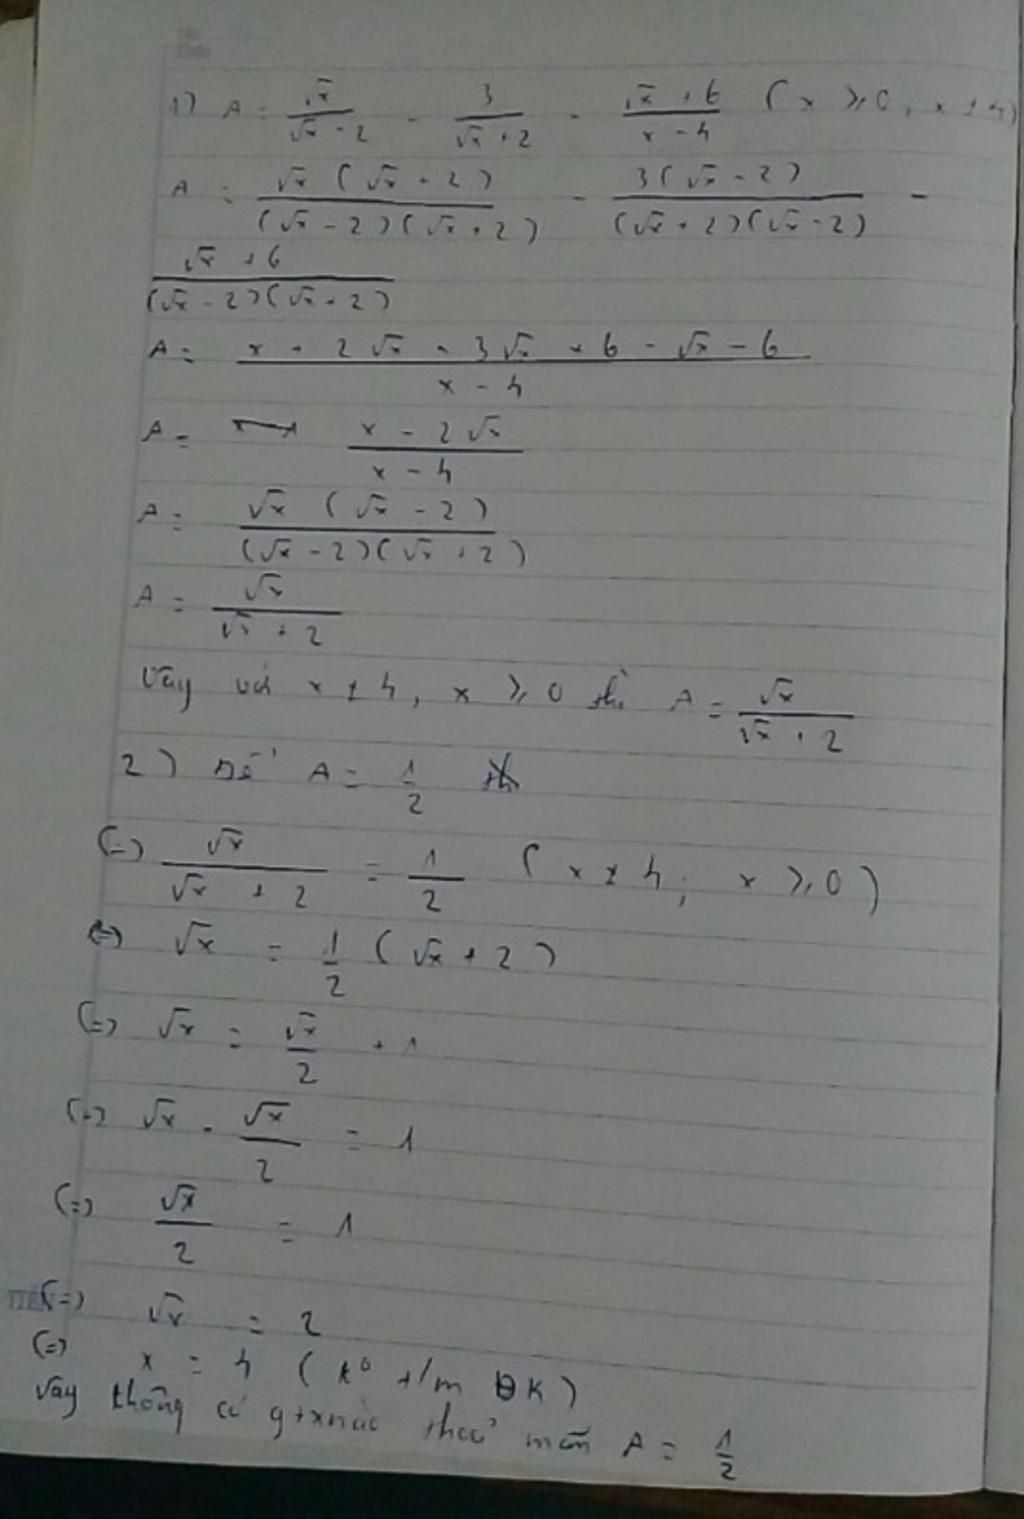 1) A = √x / (√x - 2) - 3 / (√x + 2) - (√x + 6) / (x - 4) ( x ≥ 0, x ≠ 4)
A = √x (√x + 2) / (√x - 2)(√x + 2) - 3(√x - 2) / (√x + 2)(√x - 2) -
√x + 6 / (√x - 2)(√x + 2)
A = x + 2√x - 3√x + 6 - √x - 6 / x - 4
A = x - 2√x / x - 4
A = √x (√x - 2) / (√x - 2)(√x + 2)
A = √x / √x + 2
Vậy với x ≠ 4, x ≥ 0 thì A = √x / √x + 2
2) Để A = 1/2
(=) √x / √x + 2 = 1/2 ( x ≠ 4; x ≥ 0)
(=) √x = 1/2 (√x + 2)
(=) √x = √x/2 + 1
(=) √x - √x/2 = 1
(=) √x/2 = 1
(=) √x = 2
(=) x = 4 (k⁰ t/m ĐK)
Vậy không có gtx nào thoả mãn A = 1/2